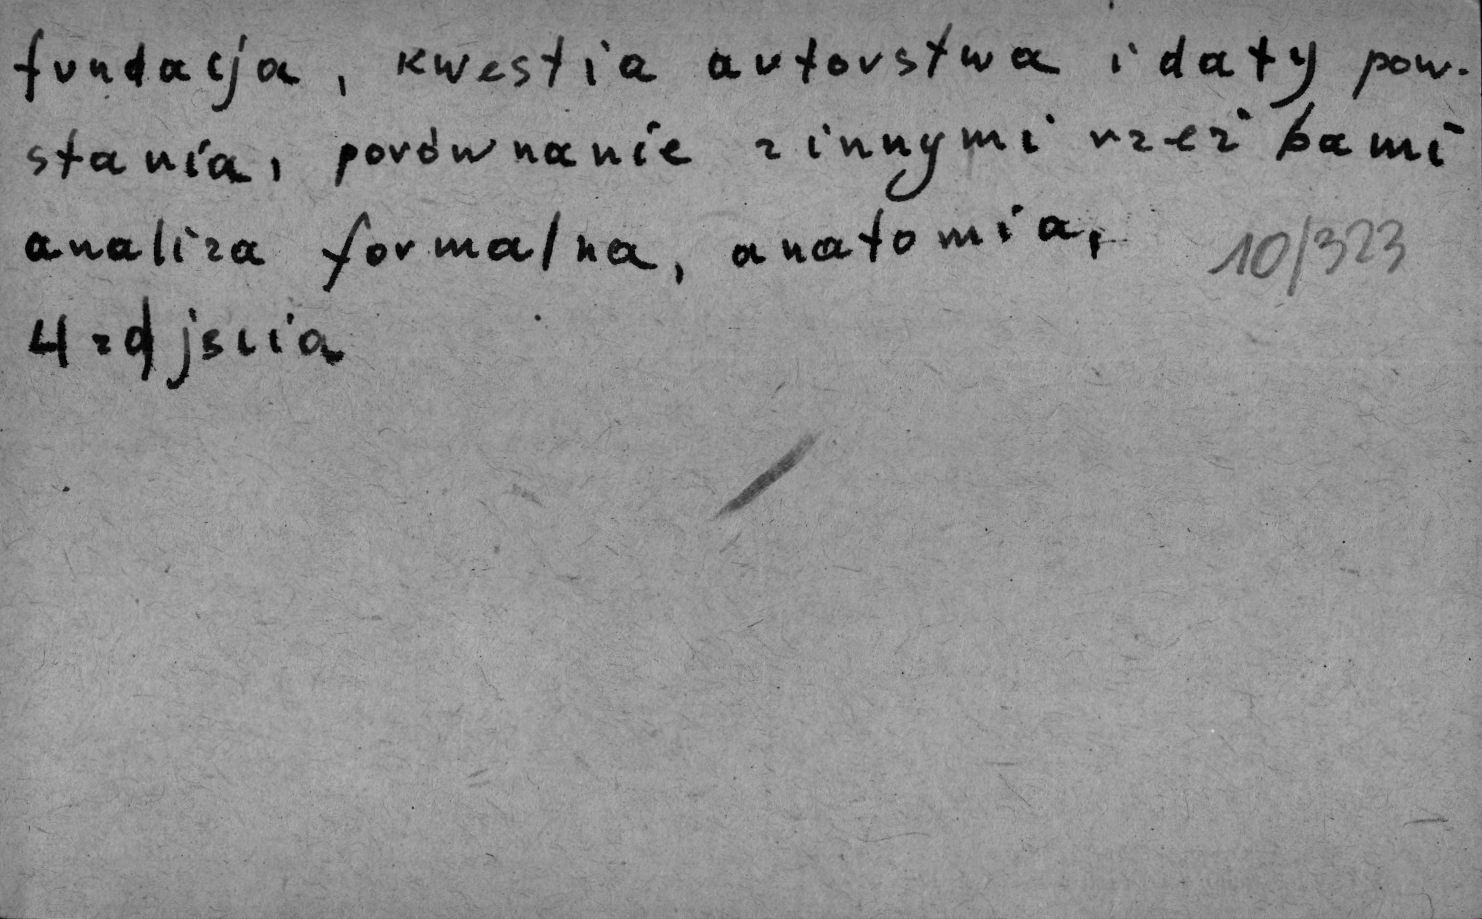 fundacja, kwestia autorstwa i daty pow-
stania, porównanie z innymi rzeźbami
analiza formalna, anatomia,
10/323
4 zdjścia